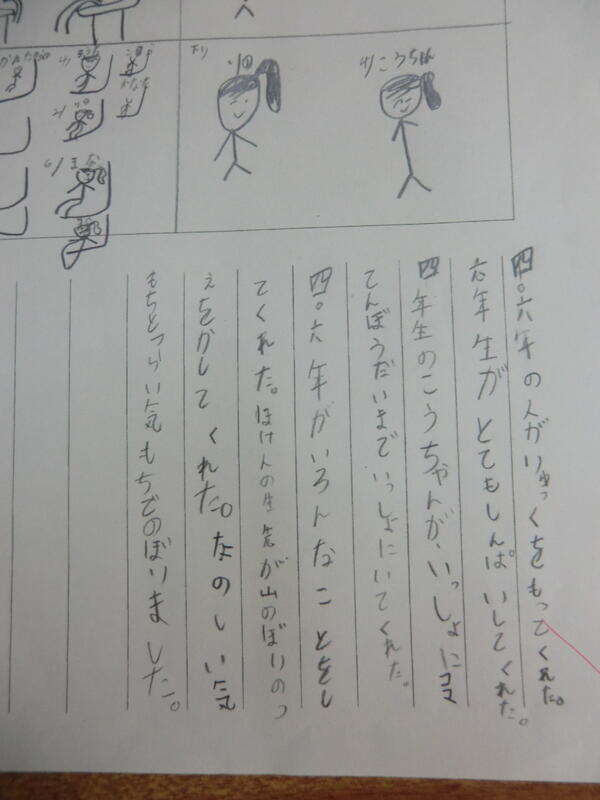 下り
4/こうちゃん
6/まな
四。六年の人がりゅっくをもってくれた。
六年生がとてもしんぱいしてくれた。
四年生のこうちゃんが、いっしょにコマ
てんぼうだいまでいっしょにいてくれた。
四。六年がいろんなことをし
てくれた。ほけんの生先が山のぼりのつ
えをかしてくれた。なのしい気
もちとつらい気もちでのぼりました。